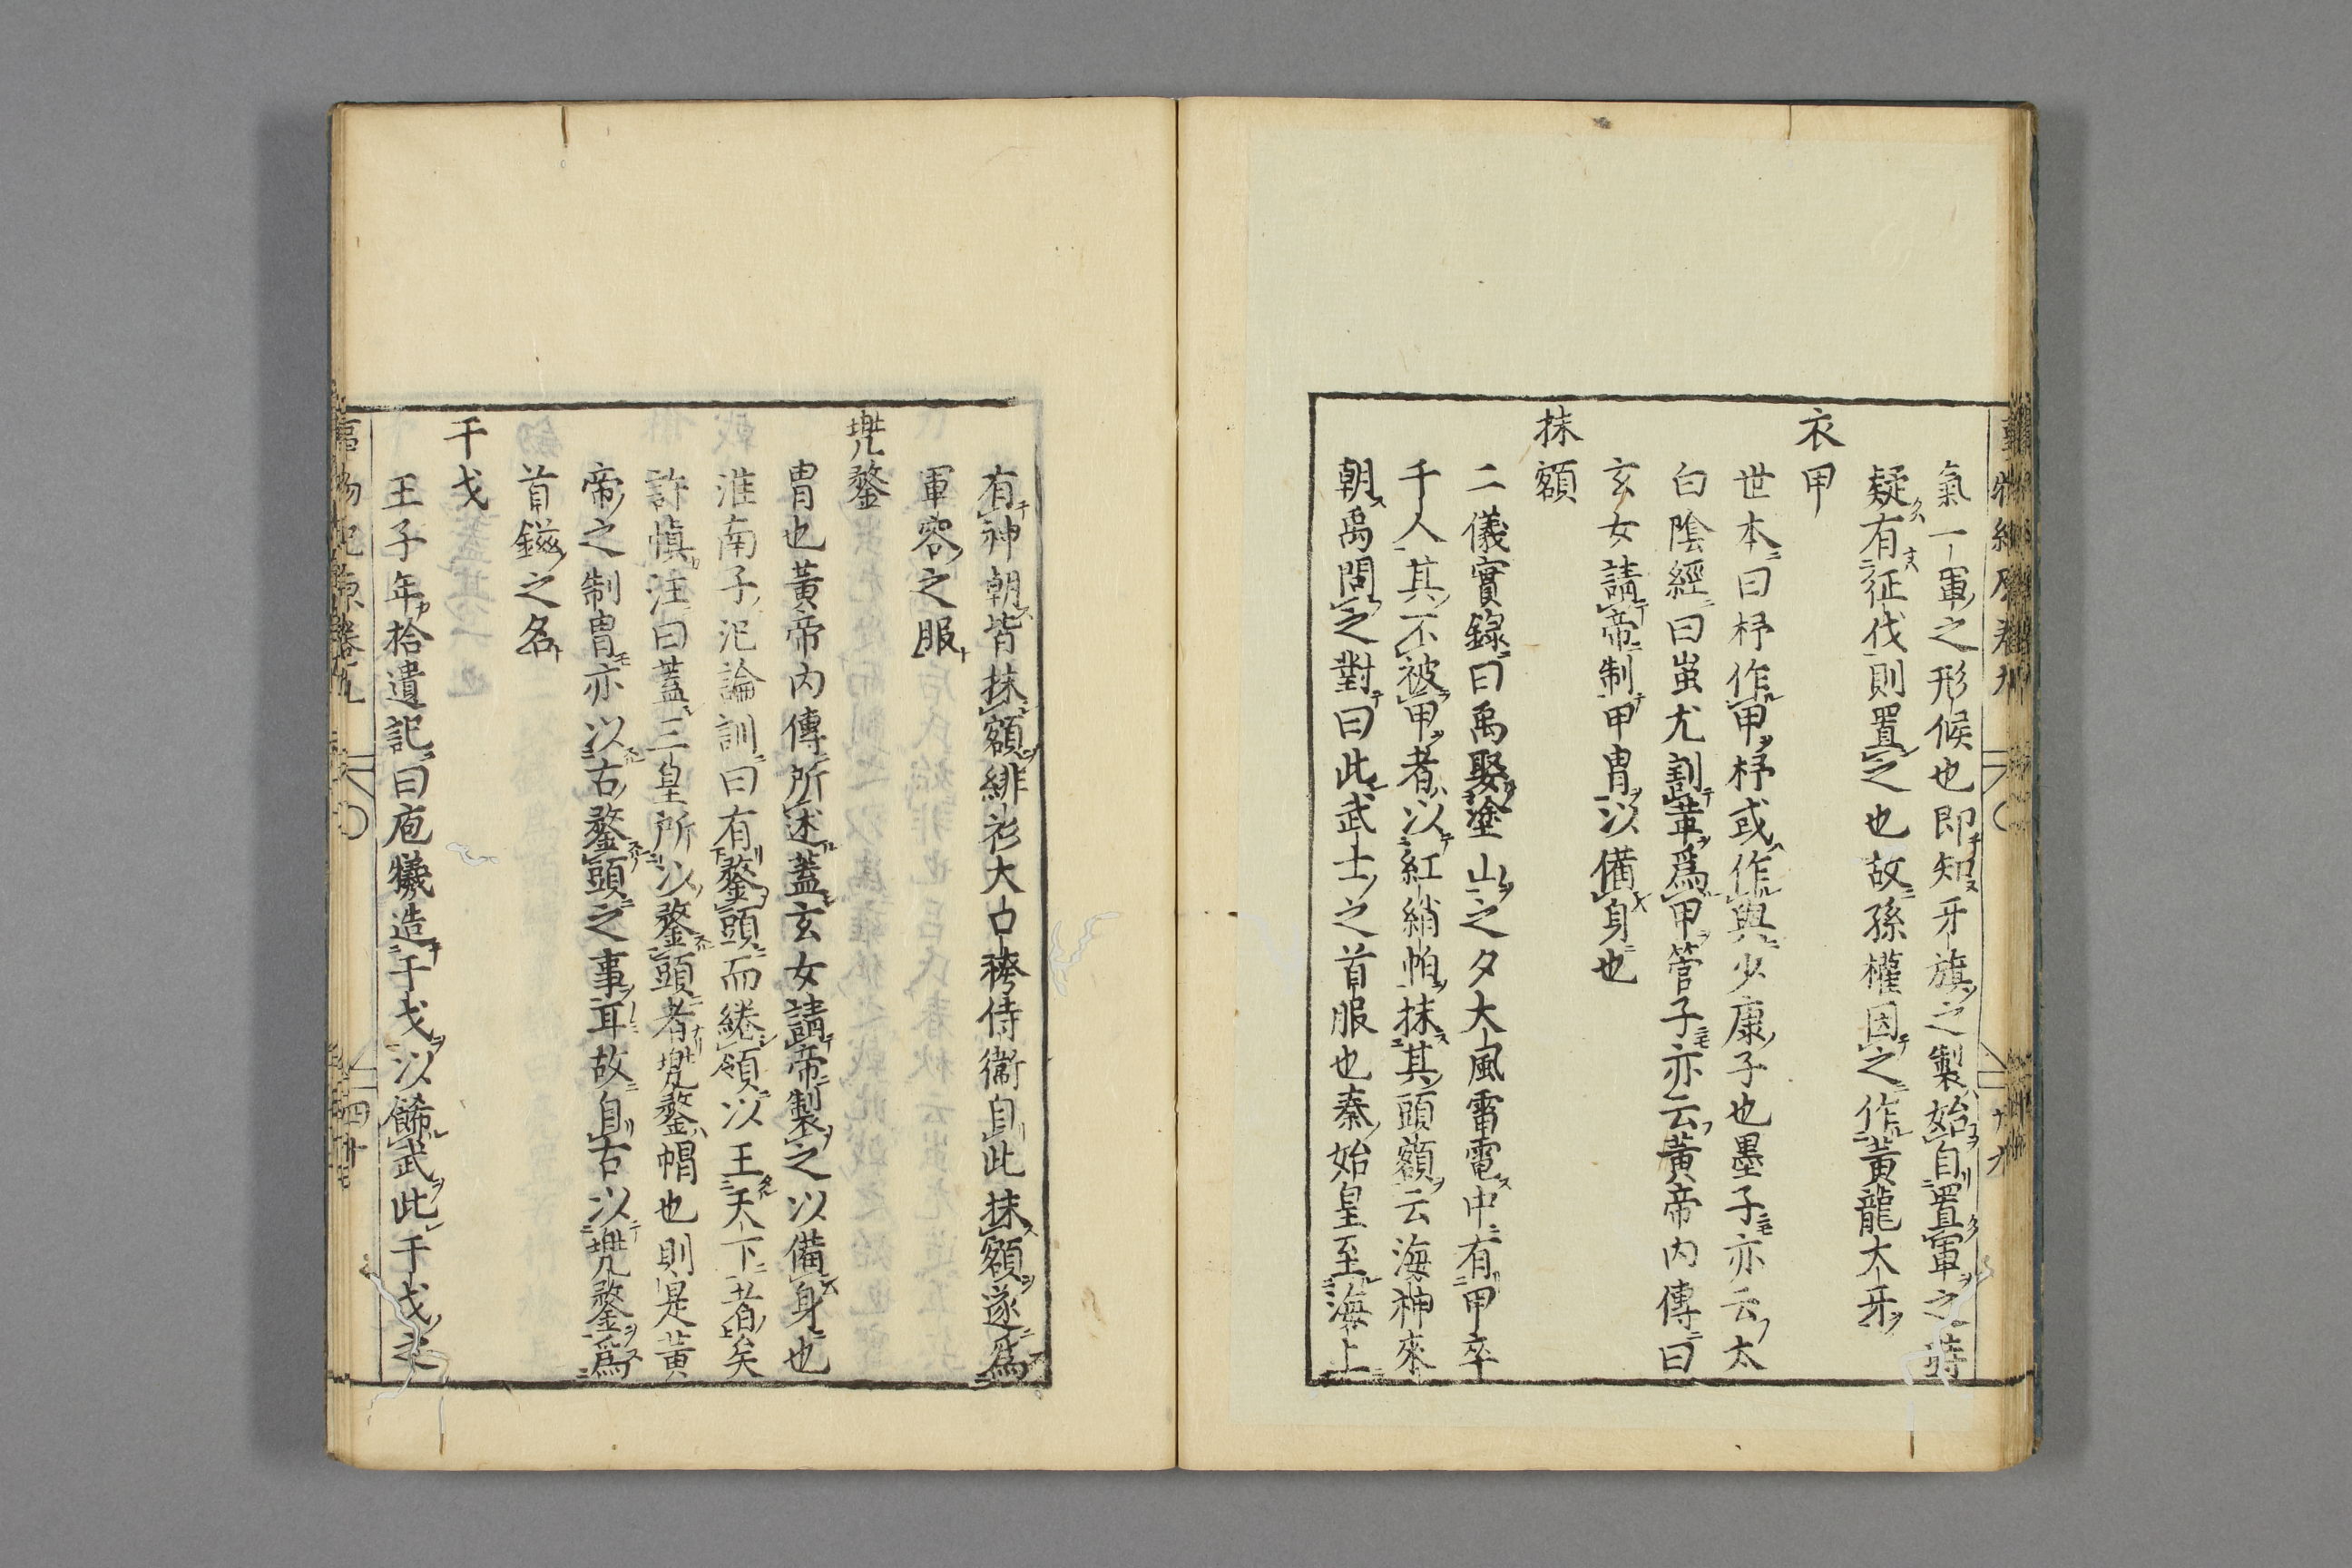 氣一軍之形候也即知牙旗之製始自置軍之時
疑有征伐則置之也故孫權因之作黃龍大牙
衣甲
世本曰杼作甲杼或作與少康子也墨子亦云太
白陰經曰蚩尤割革爲甲管子亦云黃帝内傳曰
玄女請帝制甲胄以備身也
抹額
二儀實錄曰禹娶塗山之夕大風雷電中有甲卒
千人其不被甲者以紅綃帕抹其頭額云海神來
朝禹問之對曰此武士之首服也秦始皇至海上
有神朝皆抹額緋衫大口袴侍衞自此抹額遂爲
軍容之服
兠鍪
胄也黃帝内傳所述蓋玄女請帝製之以備身也
淮南子氾論訓曰有鍪頭而綣領以王天下者矣
許愼注曰蓋三皇所以鍪頭者兠鍪帽也則是黃
帝之制胄亦以古鍪頭之事耳故自古以兠鍪爲
首鎧之名
干戈
王子年拾遺記曰庖犧造干戈以飾武此干戈之